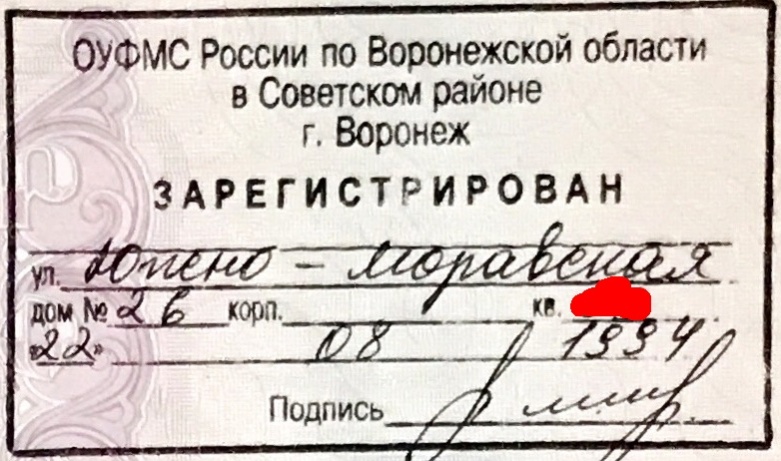 ОУФМС России по Воронежской области
в Советском районе
г. Воронеж
ЗАРЕГИСТРИРОВАН
ул. Южно - Моравская
дом № 2 б корп. кв.
«22» 08 1994
Подпись